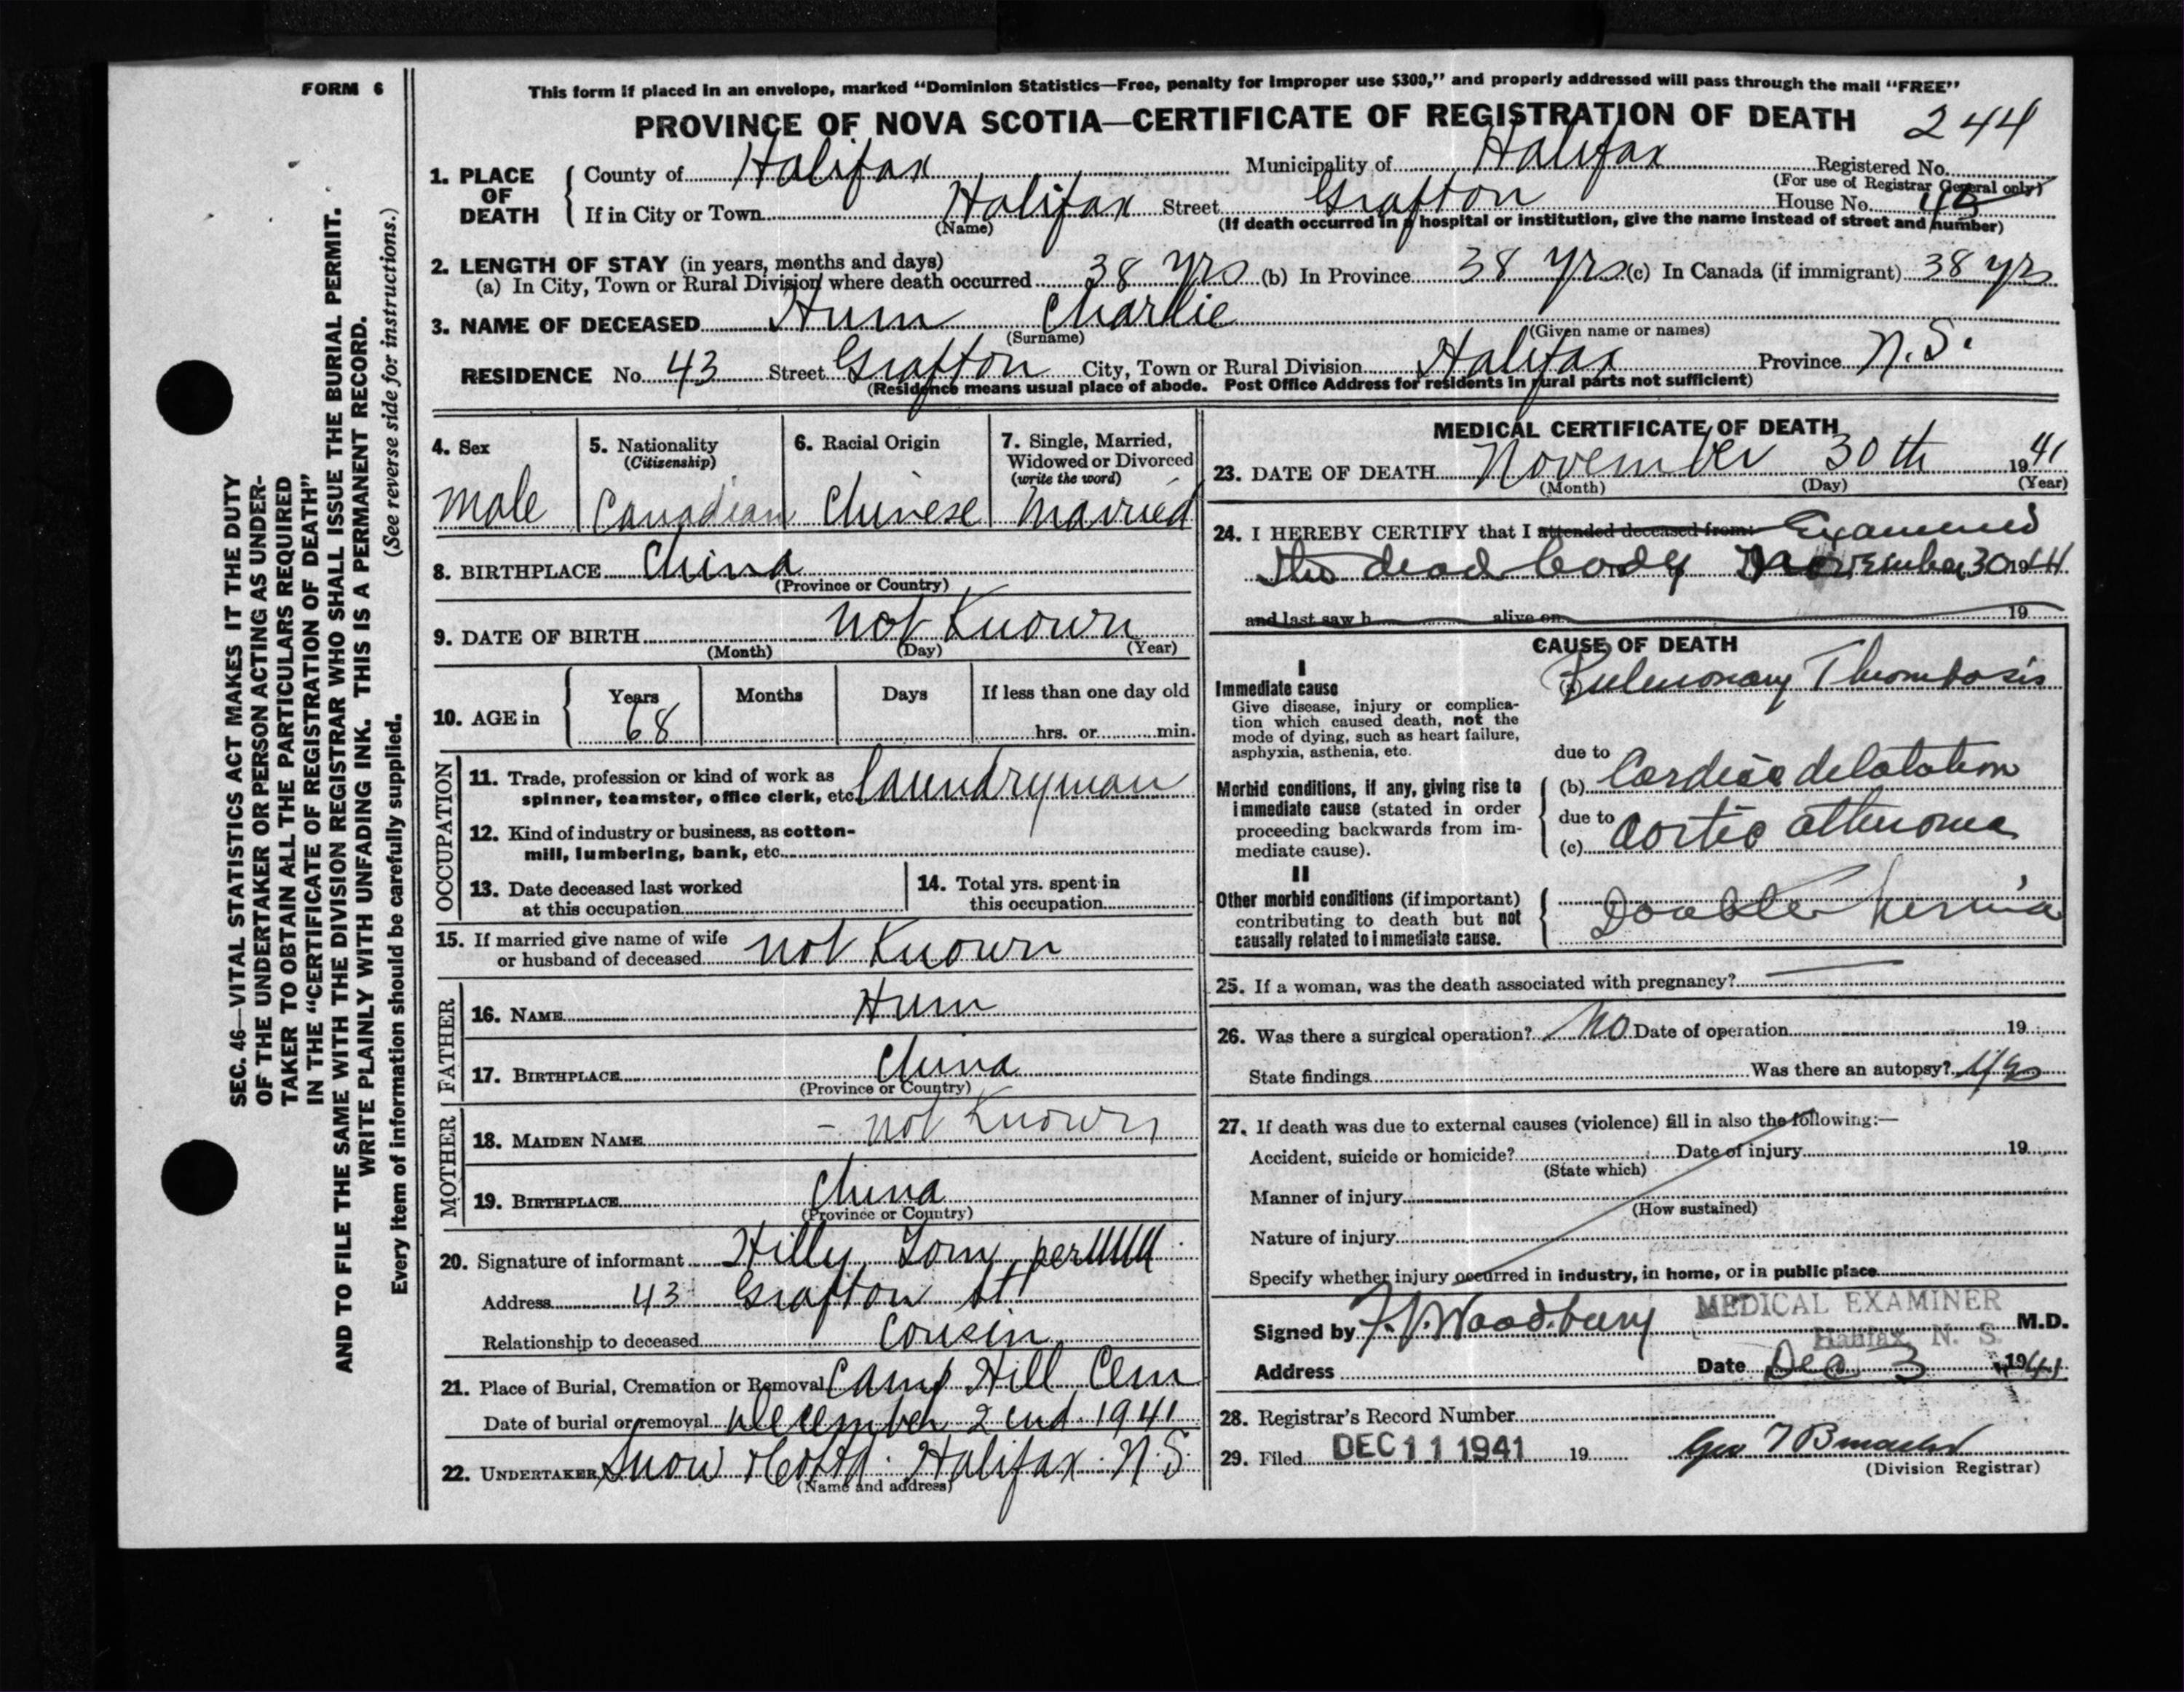 FORM 6
This form if placed in an envelope, marked "Dominion Statistics—Free, penalty for improper use $300," and properly addressed will pass through the mail "FREE"
PROVINCE OF NOVA SCOTIA—CERTIFICATE OF REGISTRATION OF DEATH 244
1. PLACE OF DEATH
County of Halifax Municipality of Halifax Registered No.
(For use of Registrar General only)
If in City or Town Halifax Street Grafton House No. 43
(Name) (If death occurred in a hospital or institution, give the name instead of street and number)
2. LENGTH OF STAY (in years, months and days)
(a) In City, Town or Rural Division where death occurred 38 yrs (b) In Province 38 yrs (c) In Canada (if immigrant) 38 yrs
3. NAME OF DECEASED Hum Charlie
(Surname) (Given name or names)
RESIDENCE No. 43 Street Grafton City, Town or Rural Division Halifax Province N.S.
(Residence means usual place of abode. Post Office Address for residents in rural parts not sufficient)
4. Sex
male
5. Nationality
(Citizenship)
Canadian
6. Racial Origin
Chinese
7. Single, Married,
Widowed or Divorced
(write the word)
Married
8. BIRTHPLACE China
(Province or Country)
9. DATE OF BIRTH not Known
(Month) (Day) (Year)
10. AGE in
Years Months Days If less than one day old
68 hrs. or min.
OCCUPATION
11. Trade, profession or kind of work as
spinner, teamster, office clerk, etc. laundryman
12. Kind of industry or business, as cotton-
mill, lumbering, bank, etc.
13. Date deceased last worked
at this occupation
14. Total yrs. spent in
this occupation
15. If married give name of wife
or husband of deceased not Known
FATHER
16. NAME Hum
17. BIRTHPLACE China
(Province or Country)
MOTHER
18. MAIDEN NAME - not Known
19. BIRTHPLACE China
(Province or Country)
20. Signature of informant Hilly Tom per
Address 43 Grafton St
Relationship to deceased Cousin
21. Place of Burial, Cremation or Removal Camp Hill Cem
Date of burial or removal December 2nd 1941
22. UNDERTAKER Snow Halifax N.S.
(Name and address)
MEDICAL CERTIFICATE OF DEATH
23. DATE OF DEATH November 30th 1941
(Month) (Day) (Year)
24. I HEREBY CERTIFY that I attended deceased from: Examined
the dead body November 30 1941
and last saw h alive on 19
CAUSE OF DEATH
I
Immediate cause
Give disease, injury or complica-
tion which caused death, not the
mode of dying, such as heart failure,
asphyxia, asthenia, etc.
(a) Pulmonary Thrombosis
due to
Morbid conditions, if any, giving rise to
immediate cause (stated in order
proceeding backwards from im-
mediate cause).
(b) Cardiac delatation
due to
(c) aortic atheroma
II
Other morbid conditions (if important)
contributing to death but not
causally related to immediate cause.
Double hernia
25. If a woman, was the death associated with pregnancy?
26. Was there a surgical operation? No Date of operation 19
State findings Was there an autopsy? yes
27. If death was due to external causes (violence) fill in also the following:—
Accident, suicide or homicide? Date of injury 19
(State which)
Manner of injury
(How sustained)
Nature of injury
Specify whether injury occurred in industry, in home, or in public place
Signed by F.V. Woodbury MEDICAL EXAMINER M.D.
Halifax, N. S.
Address Date Dec 3 1941
28. Registrar's Record Number
29. Filed DEC 11 1941 19
(Division Registrar)
SEC. 46—VITAL STATISTICS ACT MAKES IT THE DUTY
OF THE UNDERTAKER OR PERSON ACTING AS UNDER-
TAKER TO OBTAIN ALL THE PARTICULARS REQUIRED
IN THE "CERTIFICATE OF REGISTRATION OF DEATH"
AND TO FILE THE SAME WITH THE DIVISION REGISTRAR WHO SHALL ISSUE THE BURIAL PERMIT.
WRITE PLAINLY WITH UNFADING INK. THIS IS A PERMANENT RECORD.
(See reverse side for instructions.)
Every item of information should be carefully supplied.